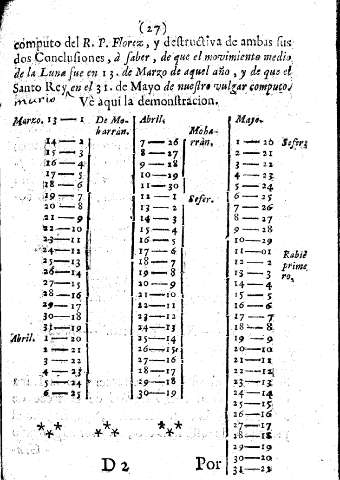 (27)
computo del R. P. Florez, y destructiva de ambas sus
dos Conclusiones, à saber, de que el movimiento medio
de la Luna fue en 13. de Marzo de aquel año, y de que el
Santo Rey en el 31. de Mayo de nuestro vulgar computo.
murio
Vè aqui la demonstracion.
Marzo. 13 — 1
14 — 2
15 — 3
16 — 4
17 — 5
18 — 6
19 — 7
20 — 8
21 — 9
22 — 10
23 — 11
24 — 12
25 — 13
26 — 14
27 — 15
28 — 16
29 — 17
30 — 18
31 — 19
Abril. 1 — 20
2 — 21
3 — 22
4 — 23
5 — 24
6 — 25
De Mo-
harràn.
Abril.
7 — 26
8 — 27
9 — 28
10 — 29
11 — 30
12 — 1
13 — 2
14 — 3
15 — 4
16 — 5
17 — 6
18 — 7
19 — 8
20 — 9
21 — 10
22 — 11
23 — 12
24 — 13
25 — 14
26 — 15
27 — 16
28 — 17
29 — 18
30 — 19
Moha-
rràn.
Sefer.
Mayo.
1 — 20
2 — 21
3 — 22
4 — 23
5 — 24
6 — 25
7 — 26
8 — 27
9 — 28
10 — 29
11 — 01
12 — 2
13 — 3
14 — 4
15 — 5
16 — 6
17 — 7
18 — 8
19 — 9
20 — 10
21 — 11
22 — 12
23 — 13
24 — 14
25 — 15
26 — 16
27 — 17
28 — 18
29 — 19
30 — 20
31 — 21
Sefer;
Rabiè
prime-
ro,
D 2
Por